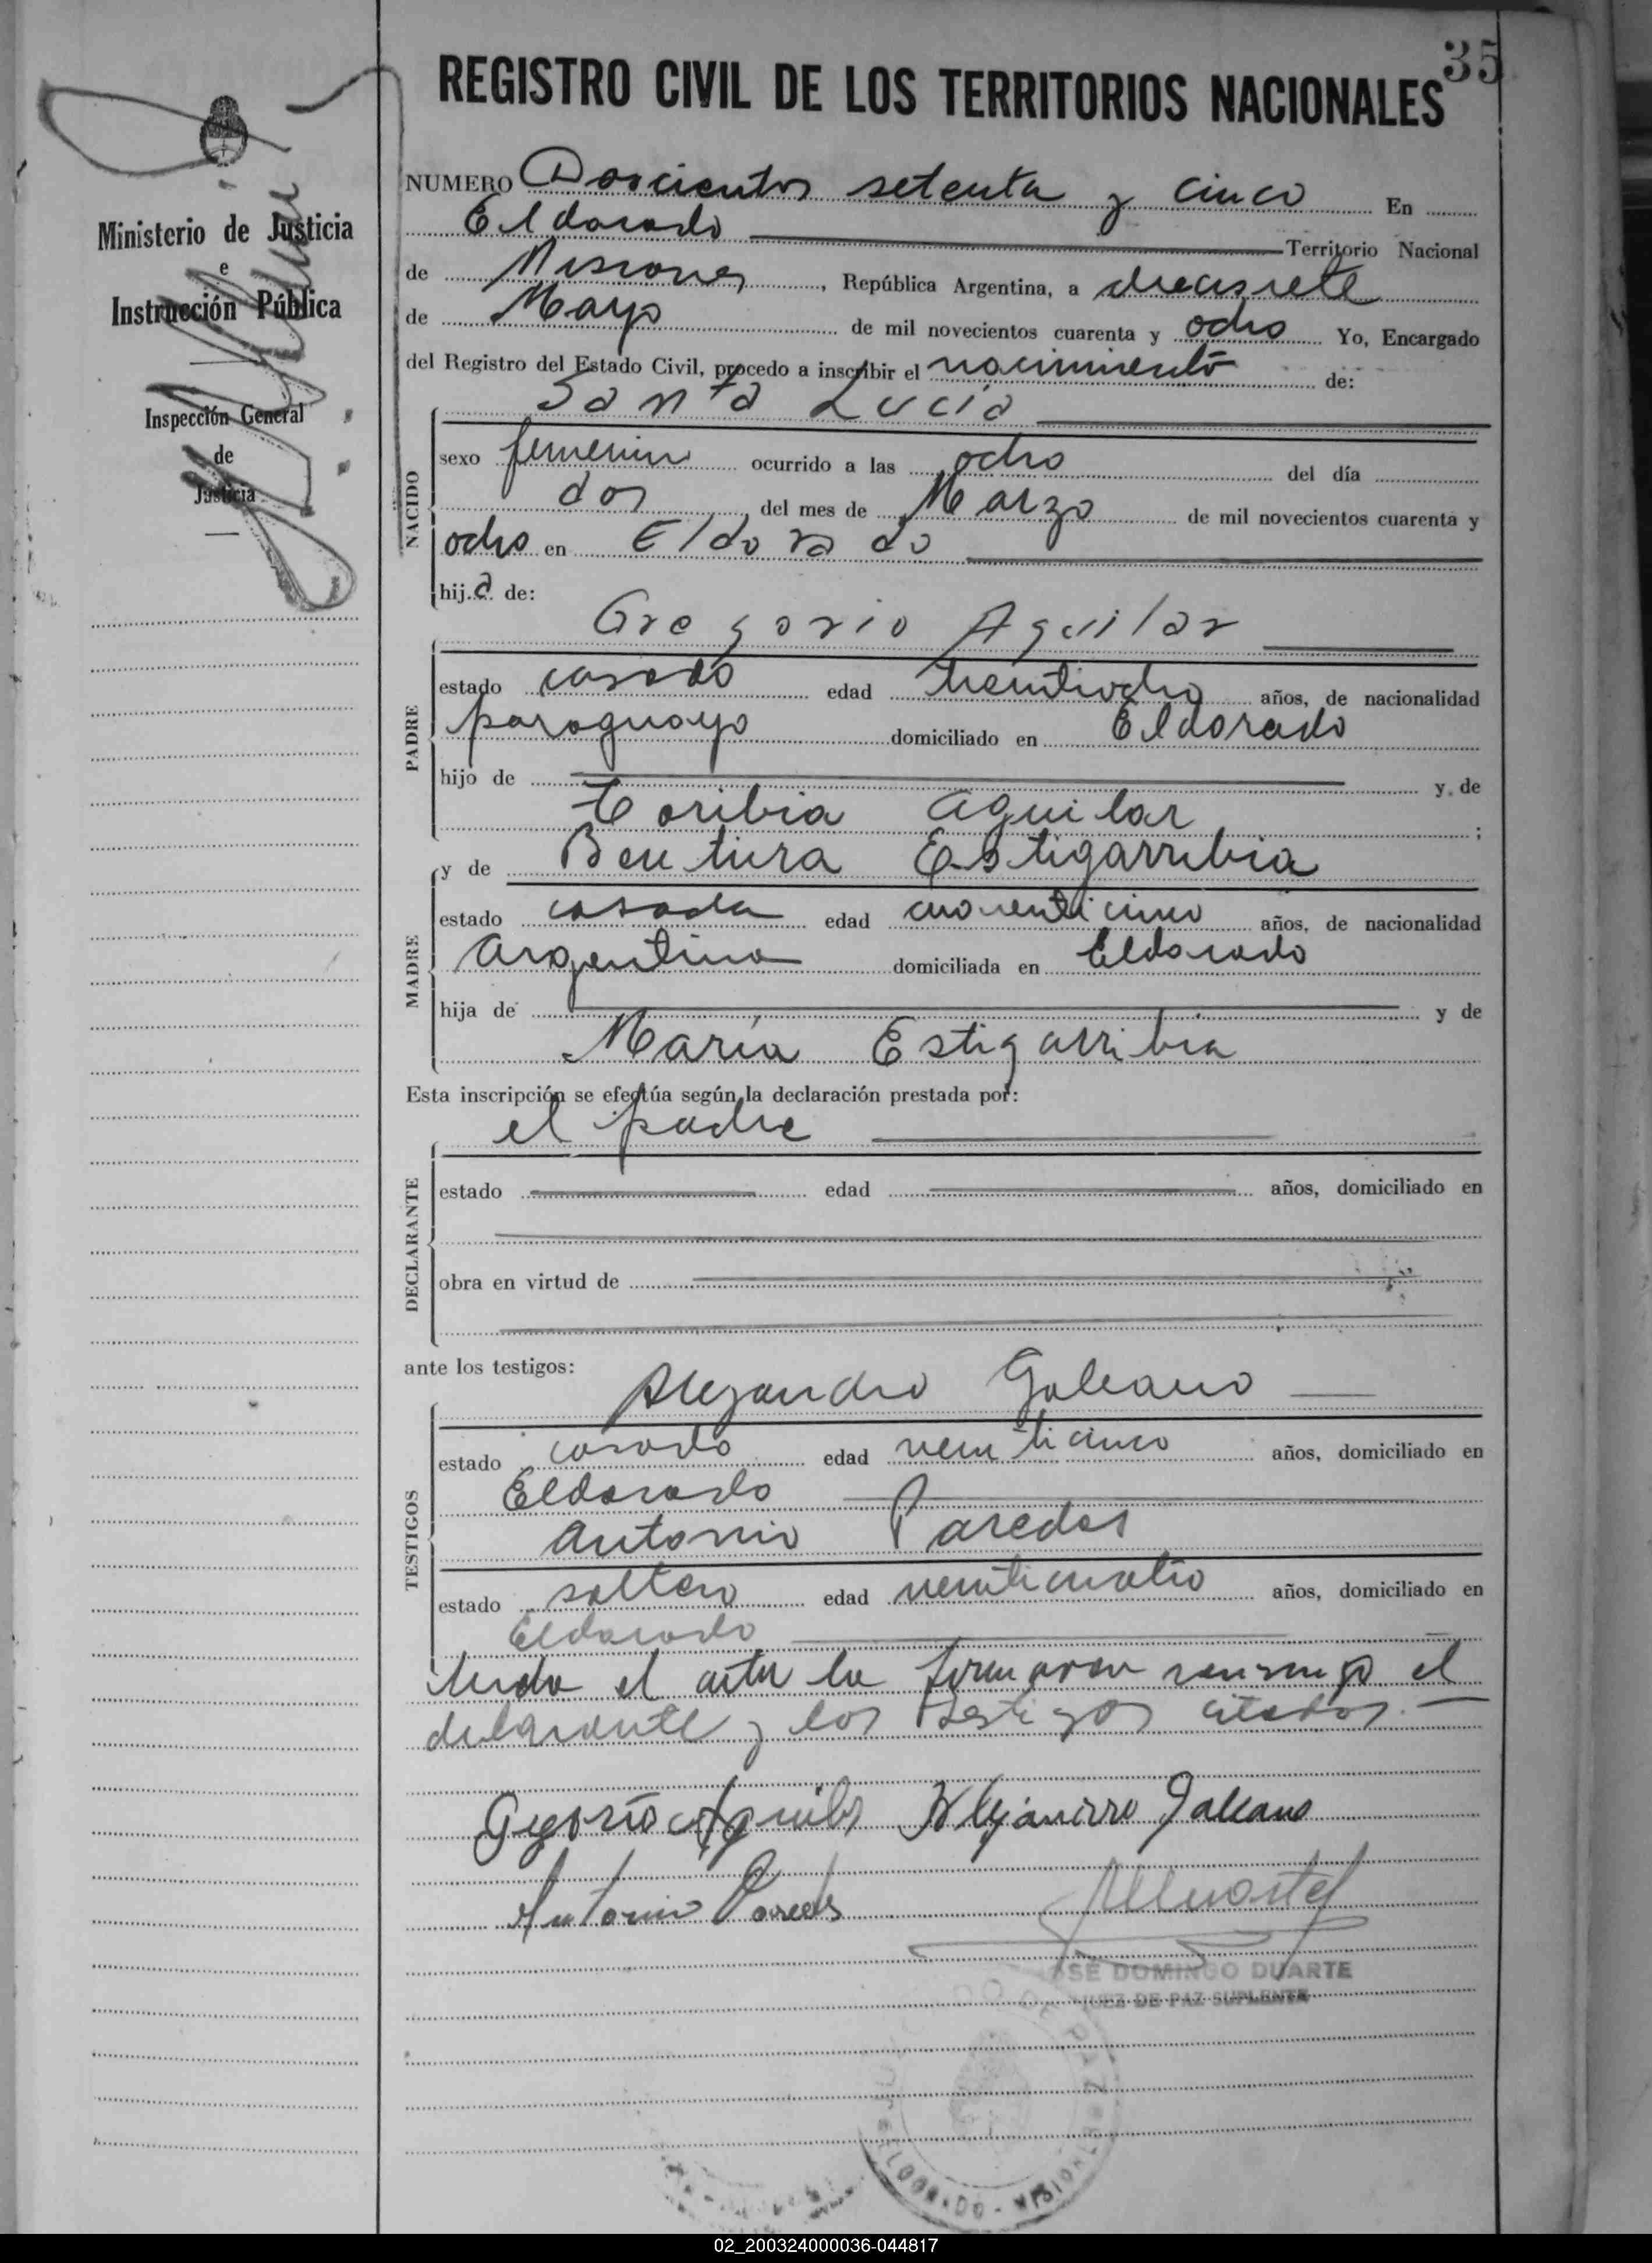 35
REGISTRO CIVIL DE LOS TERRITORIOS NACIONALES
Ministerio de Justicia
e
Instrucción Pública
Inspección General
de
Justicia
NUMERO Doscientos setenta y cinco En
Eldorado Territorio Nacional
de Misiones, República Argentina, a diecisiete
de Mayo de mil novecientos cuarenta y ocho Yo, Encargado
del Registro del Estado Civil, procedo a inscribir el nacimiento de:
Santa Lucia
NACIDO
sexo femenino ocurrido a las ocho del día
dos del mes de Marzo de mil novecientos cuarenta y
ocho en Eldorado
hija de:
Gregorio Aguilar
PADRE
estado casado edad treintiocho años, de nacionalidad
paraguayo domiciliado en Eldorado
hijo de y de
Toribia Aguilar ;
y de Bentura Estigarribia
MADRE
estado casada edad cuarenticinco años, de nacionalidad
Argentina domiciliada en Eldorado
hija de y de
María Estigarribia
Esta inscripción se efectúa según la declaración prestada por:
el padre
DECLARANTE
estado edad años, domiciliado en
obra en virtud de
ante los testigos:
Alejandro Galeano
TESTIGOS
estado casado edad veinticinco años, domiciliado en
Eldorado
Antonio Paredes
estado soltero edad veinticuatro años, domiciliado en
Eldorado
leida el acta la firmaron conmigo el
declarante y los testigos citados.-
Gregorio Aguilar Alejandro Galeano
Antonio Paredes
JOSE DOMINGO DUARTE
JUEZ DE PAZ SUPLENTE
ELDORADO - MISIONES
02_200324000036-044817